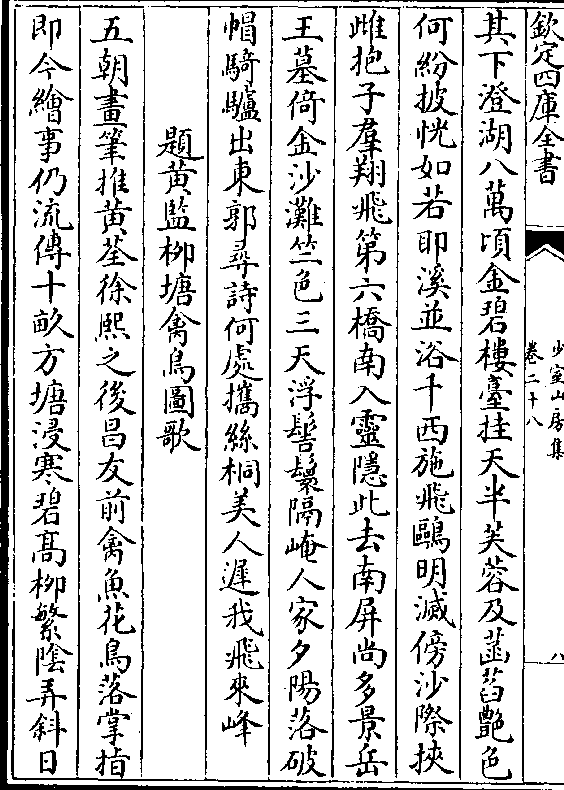 欽定四庫全書
少室山房集
卷二十八
八
其下澄湖八萬頃金碧樓臺挂天半芙蓉及菡萏艷色
何紛披恍如若耶溪並浴千西施飛鷗明滅傍沙際挾
雌抱子羣翔飛第六橋南入靈隱此去南屏尚多景岳
王墓倚金沙灘竺色三天浮髻鬟隔崦人家夕陽落破
帽騎驢出東郭尋詩何處攜絲桐美人遲我飛來峰
題黄監柳塘禽鳥圖歌
五朝畫筆推黄荃徐熙之後昌友前禽魚花鳥落掌指
即今繪事仍流傳十畝方塘浸寒碧髙柳繁陰弄斜日